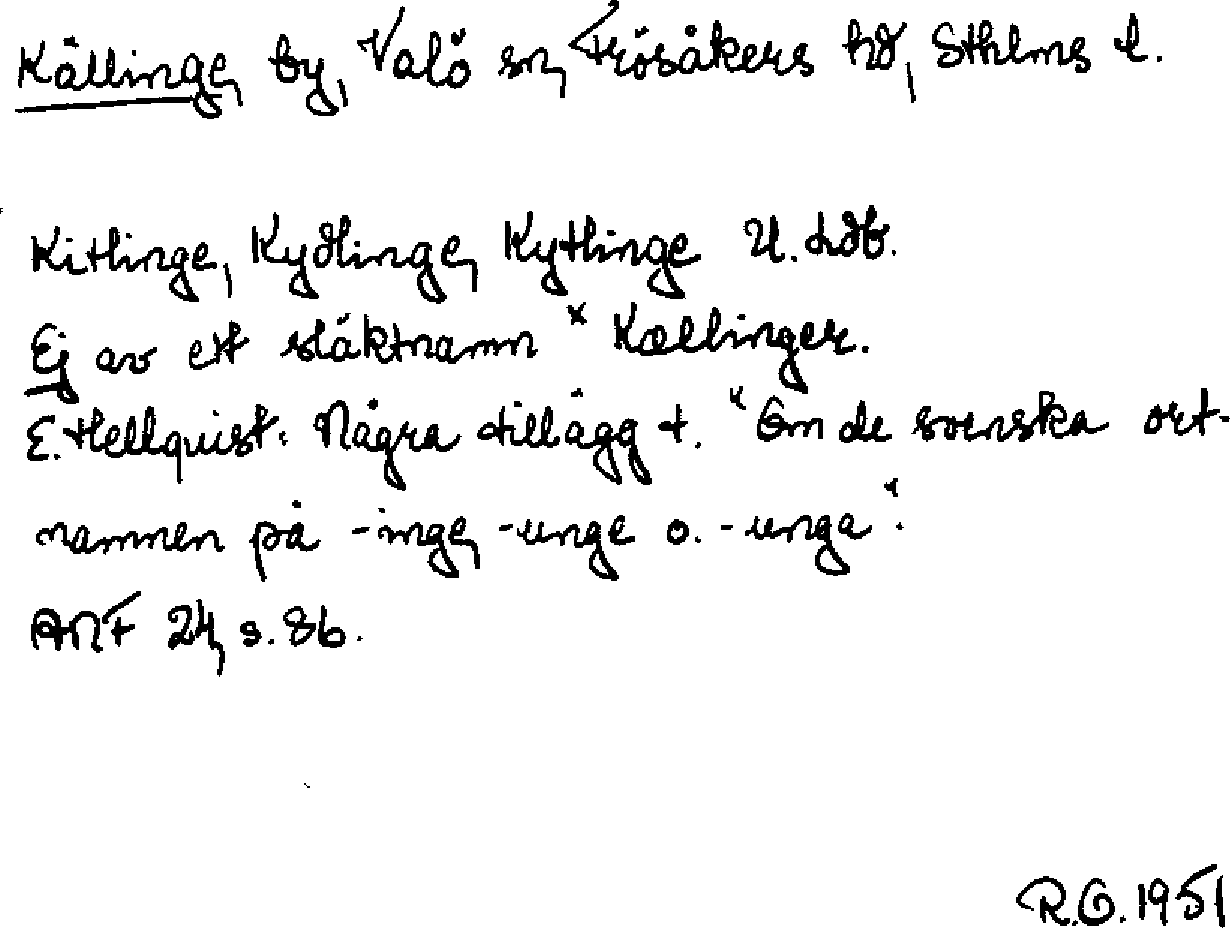 Källinge, by, Valö sn, Frösåkers hd, Sthlms l.
Kitlinge, Kydlinge, Kytlinge U. hdb.
Ej av ett släktnamn * Kællinger.
E. Hellquist: Några tillägg t. "Om de svenska ort-
namnen på -inge, -unge o. -unga".
ANF 24, s. 86.
R.O. 1951